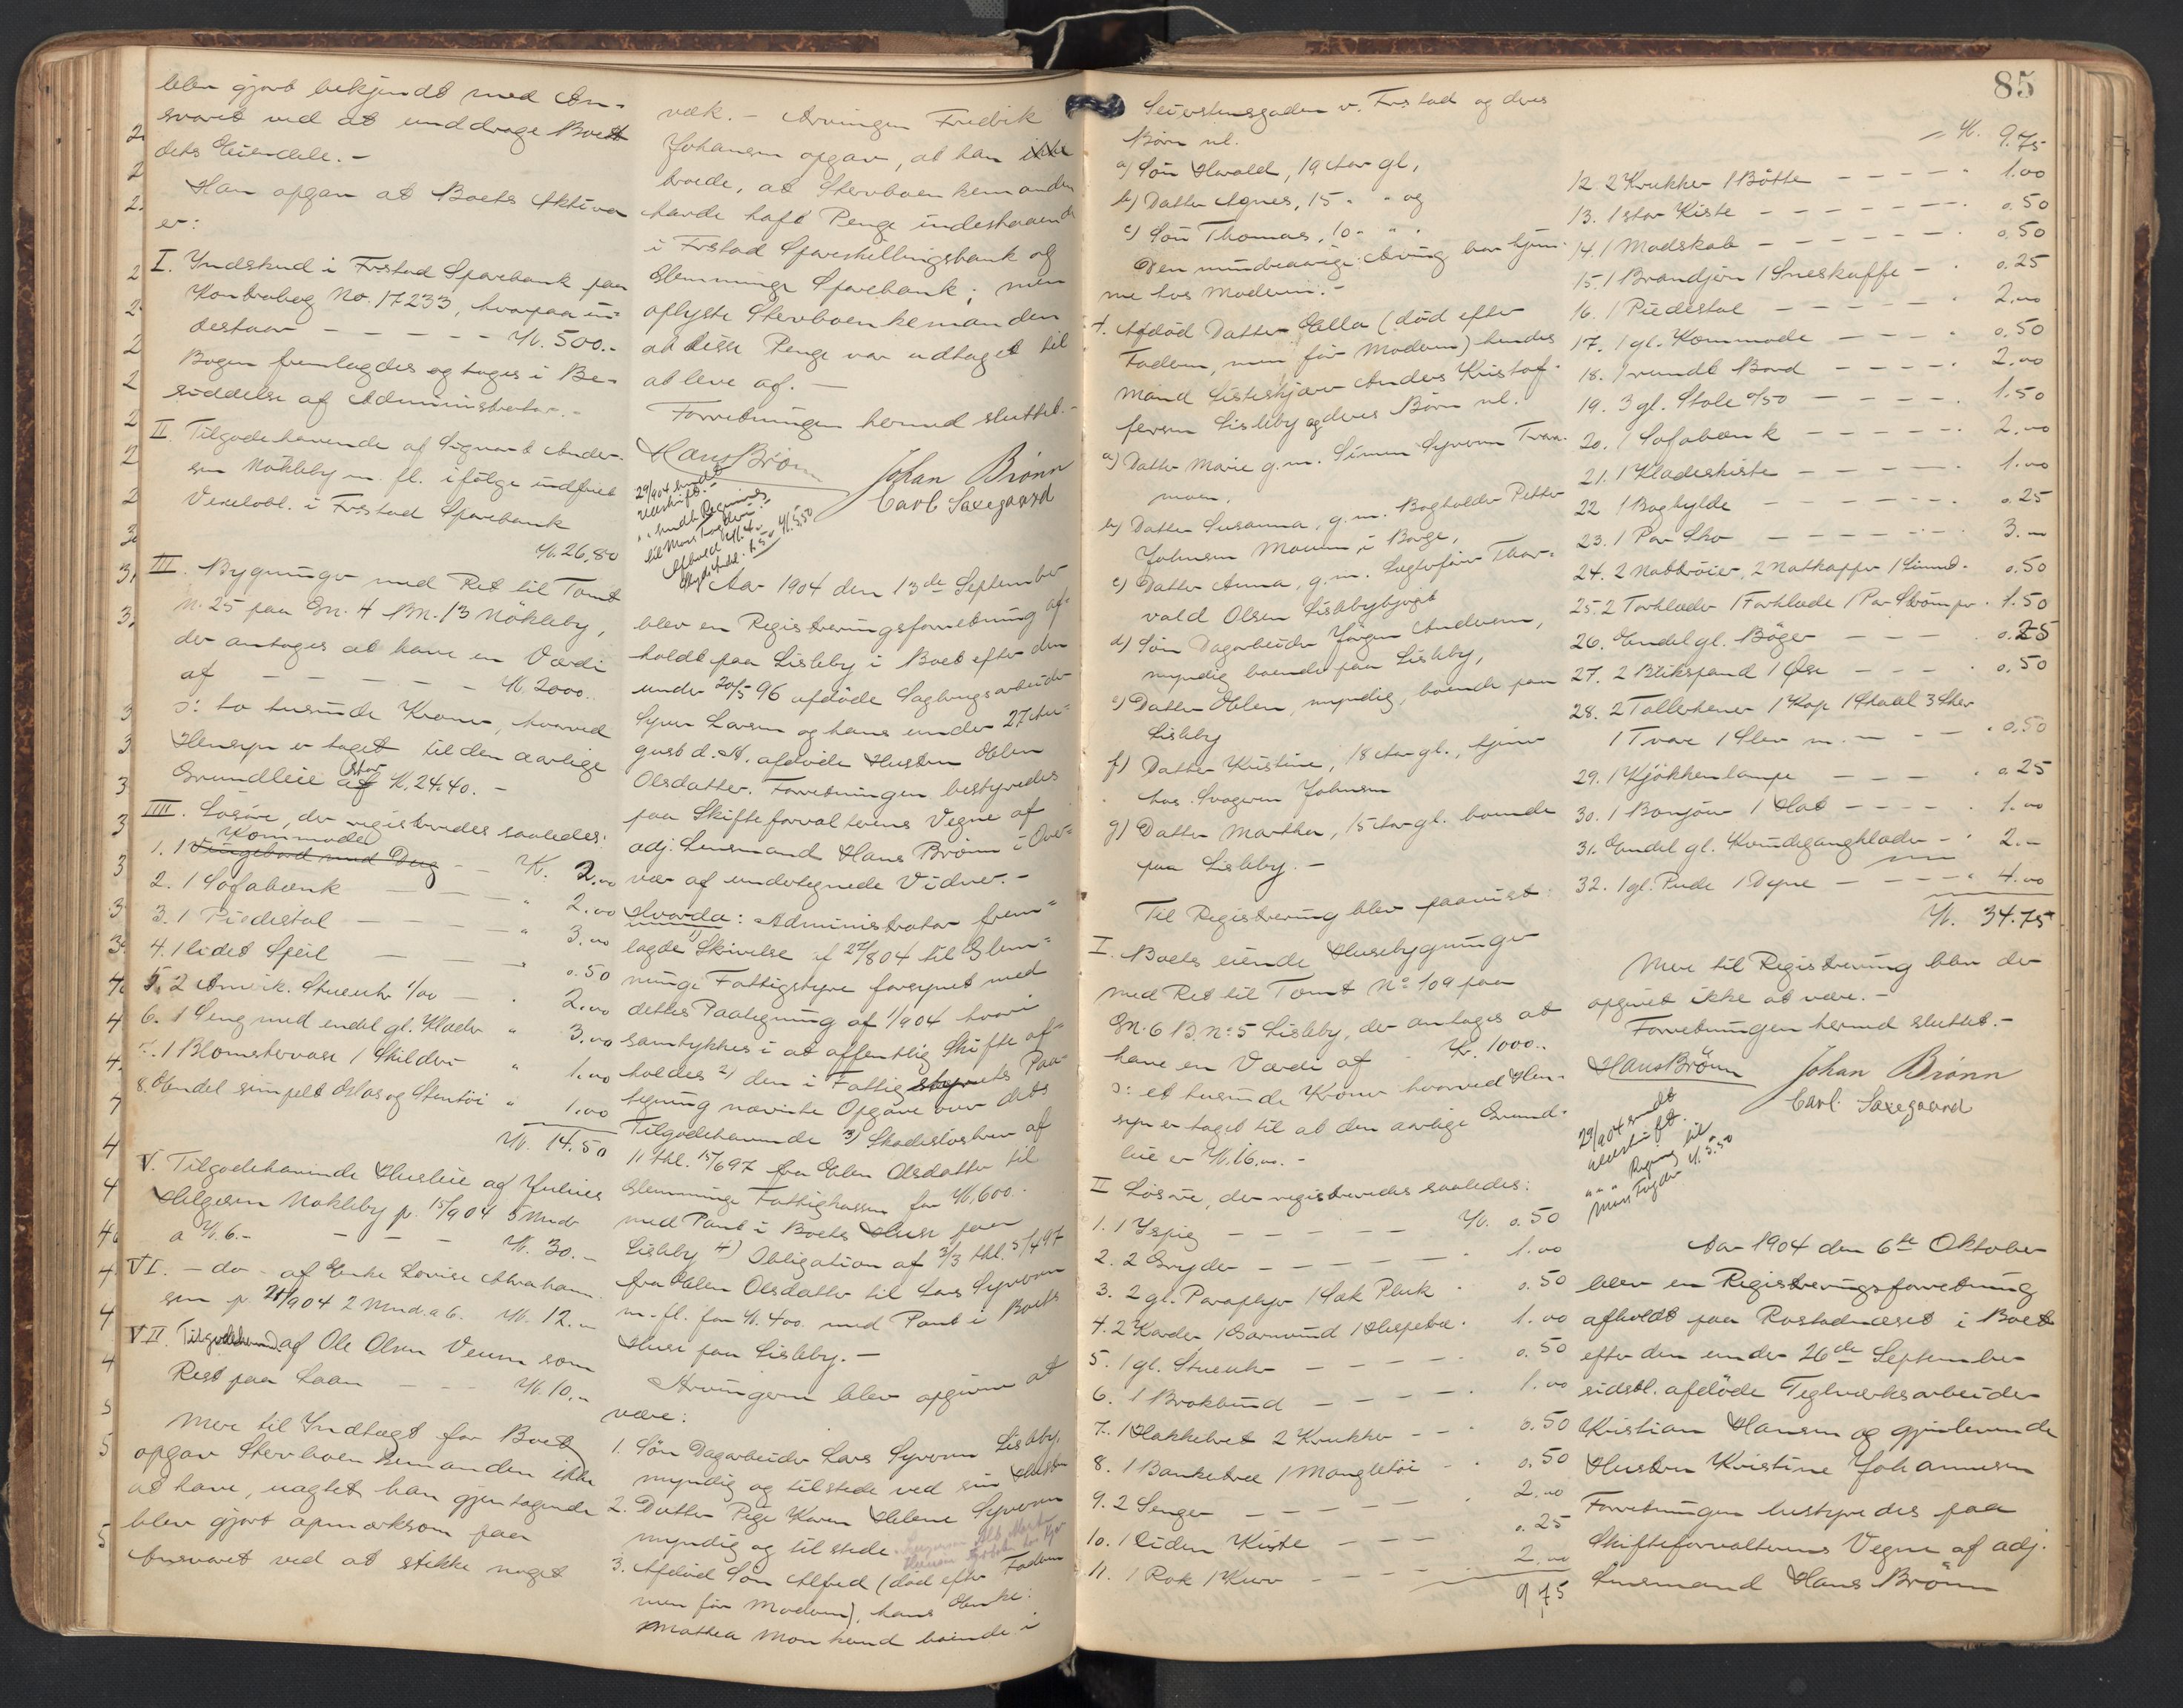 blev gjort bekjendt med An-
svaret ved at unddrage Boet
dets Eiendele. -
Han opgav at Boets Aktiva
er:
I. Indskud i Frstad Sparebank paa
Kontrabog No. 17233, hvorpaa in-
destaar - - - - - Kr. 500.-
Bogen fremlagdes og toges i Be-
siddelse af Administrator. -
II. Tilgodehavende af Sigvart Ander-
sen Nökleby m. fl. ifölge indfriet
Vexelobl. i Frstad Sparebank
Kr. 26,80
III. Bygninger med Ret til Tomt
N. 25 paa Gn. 4 Bn. 13 Nökleby,
der antages at have en Værdi
af - - - - - - Kr. 2000..
ɔ: to tusinde Kroner, hvorved
Hensyn er taget til den aarlige
Grundleie stor Kr. 24.40. -
IIII. Lösöre, der registreredes saaledes:
1. 1 Kommode - - K. 2.00
2. 1 Sofabænk - - - " 2.00
3. 1 Piedestal - - - " 3.00
4. 1 lidet Speil - - - " 0.50
5. 2 Amerik. Stueuhr 1/00 - . 2.00
6. 1 Seng med endel gl. Klæder " 3.00
7. 1 Blomstervase 1 Skilderi " 1.00
8. Endel simpelt Glas og Stentöi " 1.00
Kr. 14.50
V. Tilgodehavende Husleie af Julius
Helgesen Nökleby pr. 15/904 5 Mndr
a Kr. 6.- - - - Kr. 30.-
VI. - do - af Enke Lovise Abraham
sen pr. 21/904 2 Mnd. a 6. Kr. 12.-
VII. Tilgodehavend af Ole Olsen Veum som
Rest paa Laan - - - Kr. 10.-
Mere til Indtægt for Boet
opgav Stervboenkemanden ikke
at have, uagtet han gjentagende
blev gjort opmærksom paa
Ansvaret ved at stikke noget
væk. - Arvingen Fredrik
Johansen opgav, at han ikke
troede, at Stervboenkemanden
havde haft Penge indestaaende
i Frstad Spareskillingsbank og
Glemminge Sparebank; men
oplyste Stervboenkemanden
at disse Penge var udtaget til
at leve af. -
Forretningen hermed sluttet. -
Hans Brönn
Johan Brönn
Carl Saxegaard
29/904 sendt
udskrift. -
" " sendt Regning
til Mons Fogden
Kr. 5.50
Aar 1904 den 13de September
blev en Registreringsforretning af-
holdt paa Lisleby i Boet efter den
under 20/5 96 afdöde Sagbrugsarbeider
Syver Larsen og hans under 27 Au-
gust d. A. afdöde Hustru Elen
Olsdatter. Forretningen bestyredes
paa Skifteforvalterens Vegne af
adj. Lensmand Hans Brönn i Over-
vær af undertegnede Vidner. -
Hvorda: Administrator frem-
lagde 1) Skrivelse af 27/804 til Glem-
minge Fattigstyre forsynet med
dettes Paategning af 1/904 hvori
samtykkes i at offentlig Skifte af-
holdes 2) den i Fattigstyrets Paa-
tegning nævnte Opgave over dets
Tilgodehavende 3) Skadeslösbrev af
11 thl. 15/697 fra Elen Olsdatter til
Glemminge Fattigkasse for Kr. 600.
med Pant i Boets Huse paa
Lisleby 4) Obligation af 3/3 thl. 5/497
fra Elen Olsdatter til Lars Syversen
m. fl. for Kr. 400. med Pant i Boets
Huse paa Lisleby. -
Arvingerne blev opgivne at
være:
1. Sön Dagarbeider Lars Syversen Lisleby,
myndig og tilstede ved sin Hustru
2. Datter Pige Karen Helene Syversen
myndig og tilstede
3. Afdöd Sön Alfred (död efter Faderen
men för Moderen), hans Enke:
Mathea Mon kend boende i
85
Seierstensgaden v. Frstad og deres
Börn nl.
a) Sön Harald, 19 Aar gl,
b) Datter Agnes, 15 " " og
c) Sön Thomas, 10 " "
Den mindreaarige Arving har hjem-
me hos Moderen. -
4. Afdöd Datter Ella (död efter
Faderen, men för Moderen) hendes
Mand Listeskjærer Anders Kristof-
fersen Lisleby og deres Börn nl.
a) Datter Marie g. m. Simen Syversen Tran-
moen.
b) Datter Susanna, g. m. Bogholder Petter
Johnsen Moum i Borge,
c) Datter Anna, g. m. Sagförer Thor-
vald Olsen Lislebyhjörgt
d) Sön Dagarbeider Jörgen Andersen,
myndig boende paa Lisleby,
e) Datter Elen, myndig, boende paa
Lisleby
f) Datter Kristine, 18 Aar gl., tjener
hos Svogeren Johnsen
g) Datter Marthea, 15 Aar gl. boende
paa Lisleby. -
Til Registrering blev paavist:
I. Boets eiende Husebygninger
med Ret til Tomt No 109 paa
Gn. 6 B. No 5 Lisleby, der antages at
have en Værdi af - Kr. 1000..
ɔ: et tusinde Kroner hvorved Hen-
syn er taget til at den aarlige Grund-
leie er Kr. 16.00. -
II Lösöre, der registreredes saaledes:
1. 1 Ispig - - - - - Kr. 0.50
2. 2 Gryder - - - - - . 1.00
3. 2 gl. Paraplyer 1 Sæk Pluk . 0.50
4. 2 Karder 1 Garnvind 1 Hespetræ . 1.00
5. 1 gl. Stueuhr - - - - . 0.50
6. 1 Brokbind - - - - . 1.00
7. 1 Hakkebret 2 Krukker - - . 0.50
8. 1 Banketræ 1 Mangletöi - . 0.50
9. 2 Senger - - - - . 2.00
10. 1 liden Kiste - - - . 0.25
11. 1 Rok 1 Kurv - - - - 2.00
9,75
Kr. 9.75
12 2 Krukker 1 Bötte - - - - - 1.00
13. 1 stor Kiste - - - - - - . 0.50
14. 1 Madskab - - - - - . 0.50
15. 1 Brandjern 1 Sneskuffe - . 0.25
16. 1 Piedestal - - - - - . 2.00
17. 1 gl. Kommode - - - . 0.50
18. 1 rundt Bord - - - - . 2.00
19. 3 gl. Stole 0/50 - - - - . 1.50
20. 1 Sofabænk - - - - - . 2.00
21. 1 Klædeskiste - - - - . 1.00
22 1 Boghylde - - - - - . 0.25
23. 1 Par Sko - - - - - . 3.-
24. 2 Nattröier, 2 Natkapper 1 Linned. 0.50
25. 2 Torklæder 1 Forklæde 1 Par Strömper . 1.50
26. Endel gl. Böger - - - . 0.25
27. 2 Blikspand 1 Öse - - - . 0.50
28. 2 Tallerkener 1 Kop 1 Skaal 3 Skeer
1 Tvare 1 Slev m. m - - . 0.50
29. 1 Kjökkenlampe - - - . 0.25
30. 1 Bonjour 1 Hat - - - - . 1.00
31. Endel gl. Kvindegangklæder - . 2.-
32. 1 gl. Pude 1 Dyne - - - - . 4.00
Kr. 34.75
Mere til Registrering blev der
opgivet ikke at være. -
Forretningen hermed sluttet. -
Hans Brönn
Johan Brönn
Carl Saxegaard
29/904 sendt
udskrift.
" " " Regning til
Mons Fogden Kr. 5.50
Aar 1904 den 6te Oktober
blev en Registreringsforretning
afholdt paa Rostadnæset i Boet
efter den under 26de September
sidstl. afdöde Teglværksarbeider
Kristian Hansen og gjenlevende
Hustru Kristine Johannesen
Forretningen bestyredes paa
Skifteforvalterens Vegne af adj.
Lensmand Hans Brönn